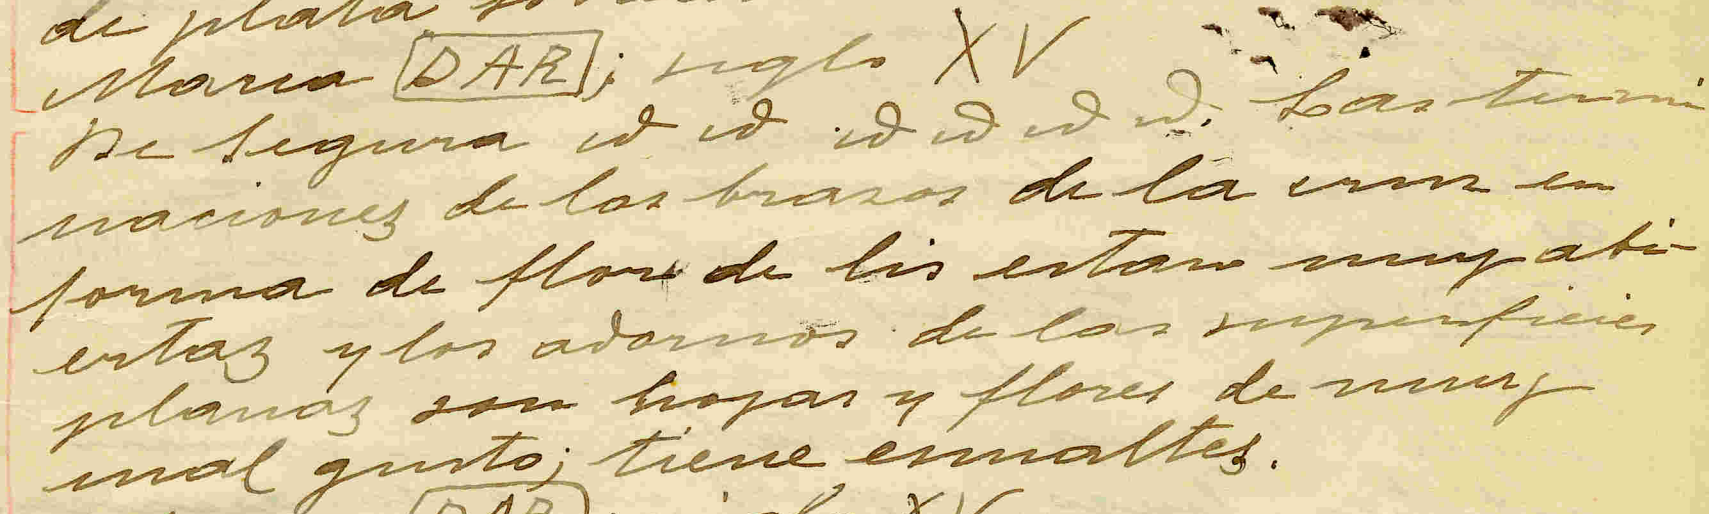 de plata
Maria DAR; siglo XV
De Segura id id id id id id. Las termi
naciones de los brazos de la cruz en
forma de flor de lis estan muy abi-
ertas y los adornos de las superficies
planas son hojas y flores de muy
mal gusto; tiene esmaltes.
DAR siglo XV